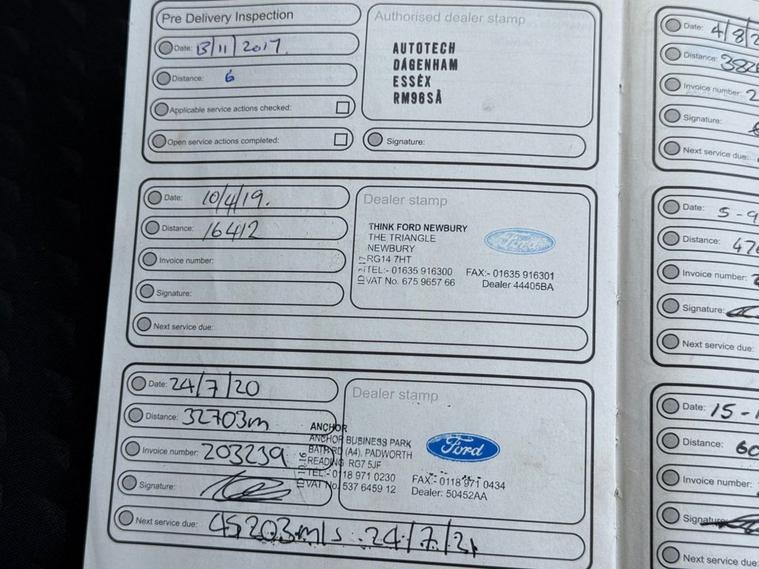 Pre Delivery Inspection
Date: 13/11/2017.
Distance: 6
Applicable service actions checked:
Open service actions completed:
Authorised dealer stamp
AUTOTECH
DAGENHAM
ESSEX
RM96SA
Signature:
Date: 10/4/19.
Distance: 16412
Invoice number:
Signature:
Next service due:
Dealer stamp
THINK FORD NEWBURY
THE TRIANGLE
NEWBURY
RG14 7HT
TEL:- 01635 916300 FAX:- 01635 916301
VAT No. 675 9657 66 Dealer 44405BA
Ford
Date: 24/7/20
Distance: 32703m
Invoice number: 203239
Signature:
Next service due: 45203mls. 24/7/21
Dealer stamp
ANCHOR
ANCHOR BUSINESS PARK
BATH RD (A4), PADWORTH
READING RG7 5JF
TEL:- 0118 971 0230 FAX:- 0118 971 0434
VAT No. 537 6459 12 Dealer: 50452AA
Ford
Date: 4/8/2
Distance: 382
Invoice number: 2
Signature:
Next service due:
Date: 5-9
Distance: 47
Invoice number:
Signature:
Next service due:
Date: 15-1
Distance: 60
Invoice number:
Signature
Next service due: